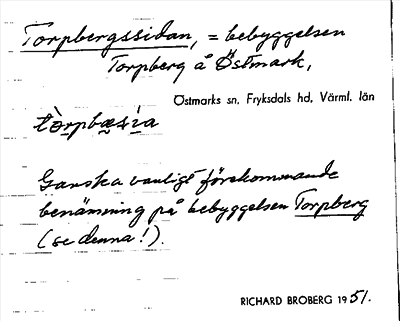 Torpbergssidan, = bebyggelsen
Torpberg å Östmark,
Östmarks sn, Fryksdals hd, Värml. län
tòrpbæsìa
Ganska vanligt förekommande
benämning på bebyggelsen Torpberg
(se denna!).
RICHARD BROBERG 1951.